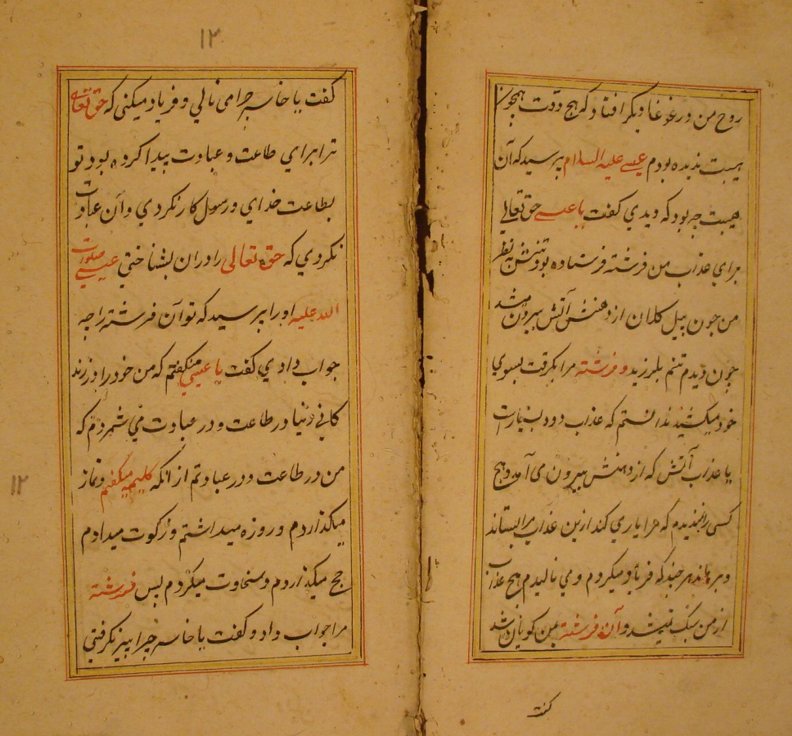 روح من در غوغا دیگر افتاد که هیچ وقت همچون
هیبت ندیده بودم عیسے علیه السلام پرسید که آن
هیبت چه بود که دیدی کفت یا عیسے حق تعالی
برای عذاب من فرشته فرستاده بود تنش بنظر
من چون پیل کلان از دهنش آتش بیرون میشد
چون دیدم تنم بلرزید و فرشته مرا بگرفت بسوی
خود میکشید ندانستم که عذاب دود بسیار است
یا عذاب آتش که از دهنش بیرون می آمد و هیچ
کسی را ندیدم که مرا یاری کند ازین عذاب مرا بستاند
و برهاند هر چند که فریاد میکردم و می نالیدم هیچ عذاب
از من سبک نمیشد و آن فرشته بمن کویان شد
کفت
۱۲
کفت یا خاسر چرا می نالی و فریاد میکنی که حق تعالی
ترا برای طاعت و عبادت پیدا کرده بود تو
بطاعت خدای و رسول کار نکردی و آن عبادت
نکردی که حق تعالی را دران بشناختی عیسے صلوات
الله علیه او را پرسید که تو آن فرشته را چه
جواب دادی کفت یا عیسی من کفتم که من خود را در زند
کانی دنیا در طاعت و در عبادت می شمردم که
من در طاعت و در عبادتم از انکه کلمه میکفتم و نماز
میکذاردم و روزه میداشتم و زکوت میدادم
حج میکذاردم و سخاوت میکردم پس فرشته
مرا جواب داد و کفت یا خاسر چرا پیز نکرفتی
۱۲